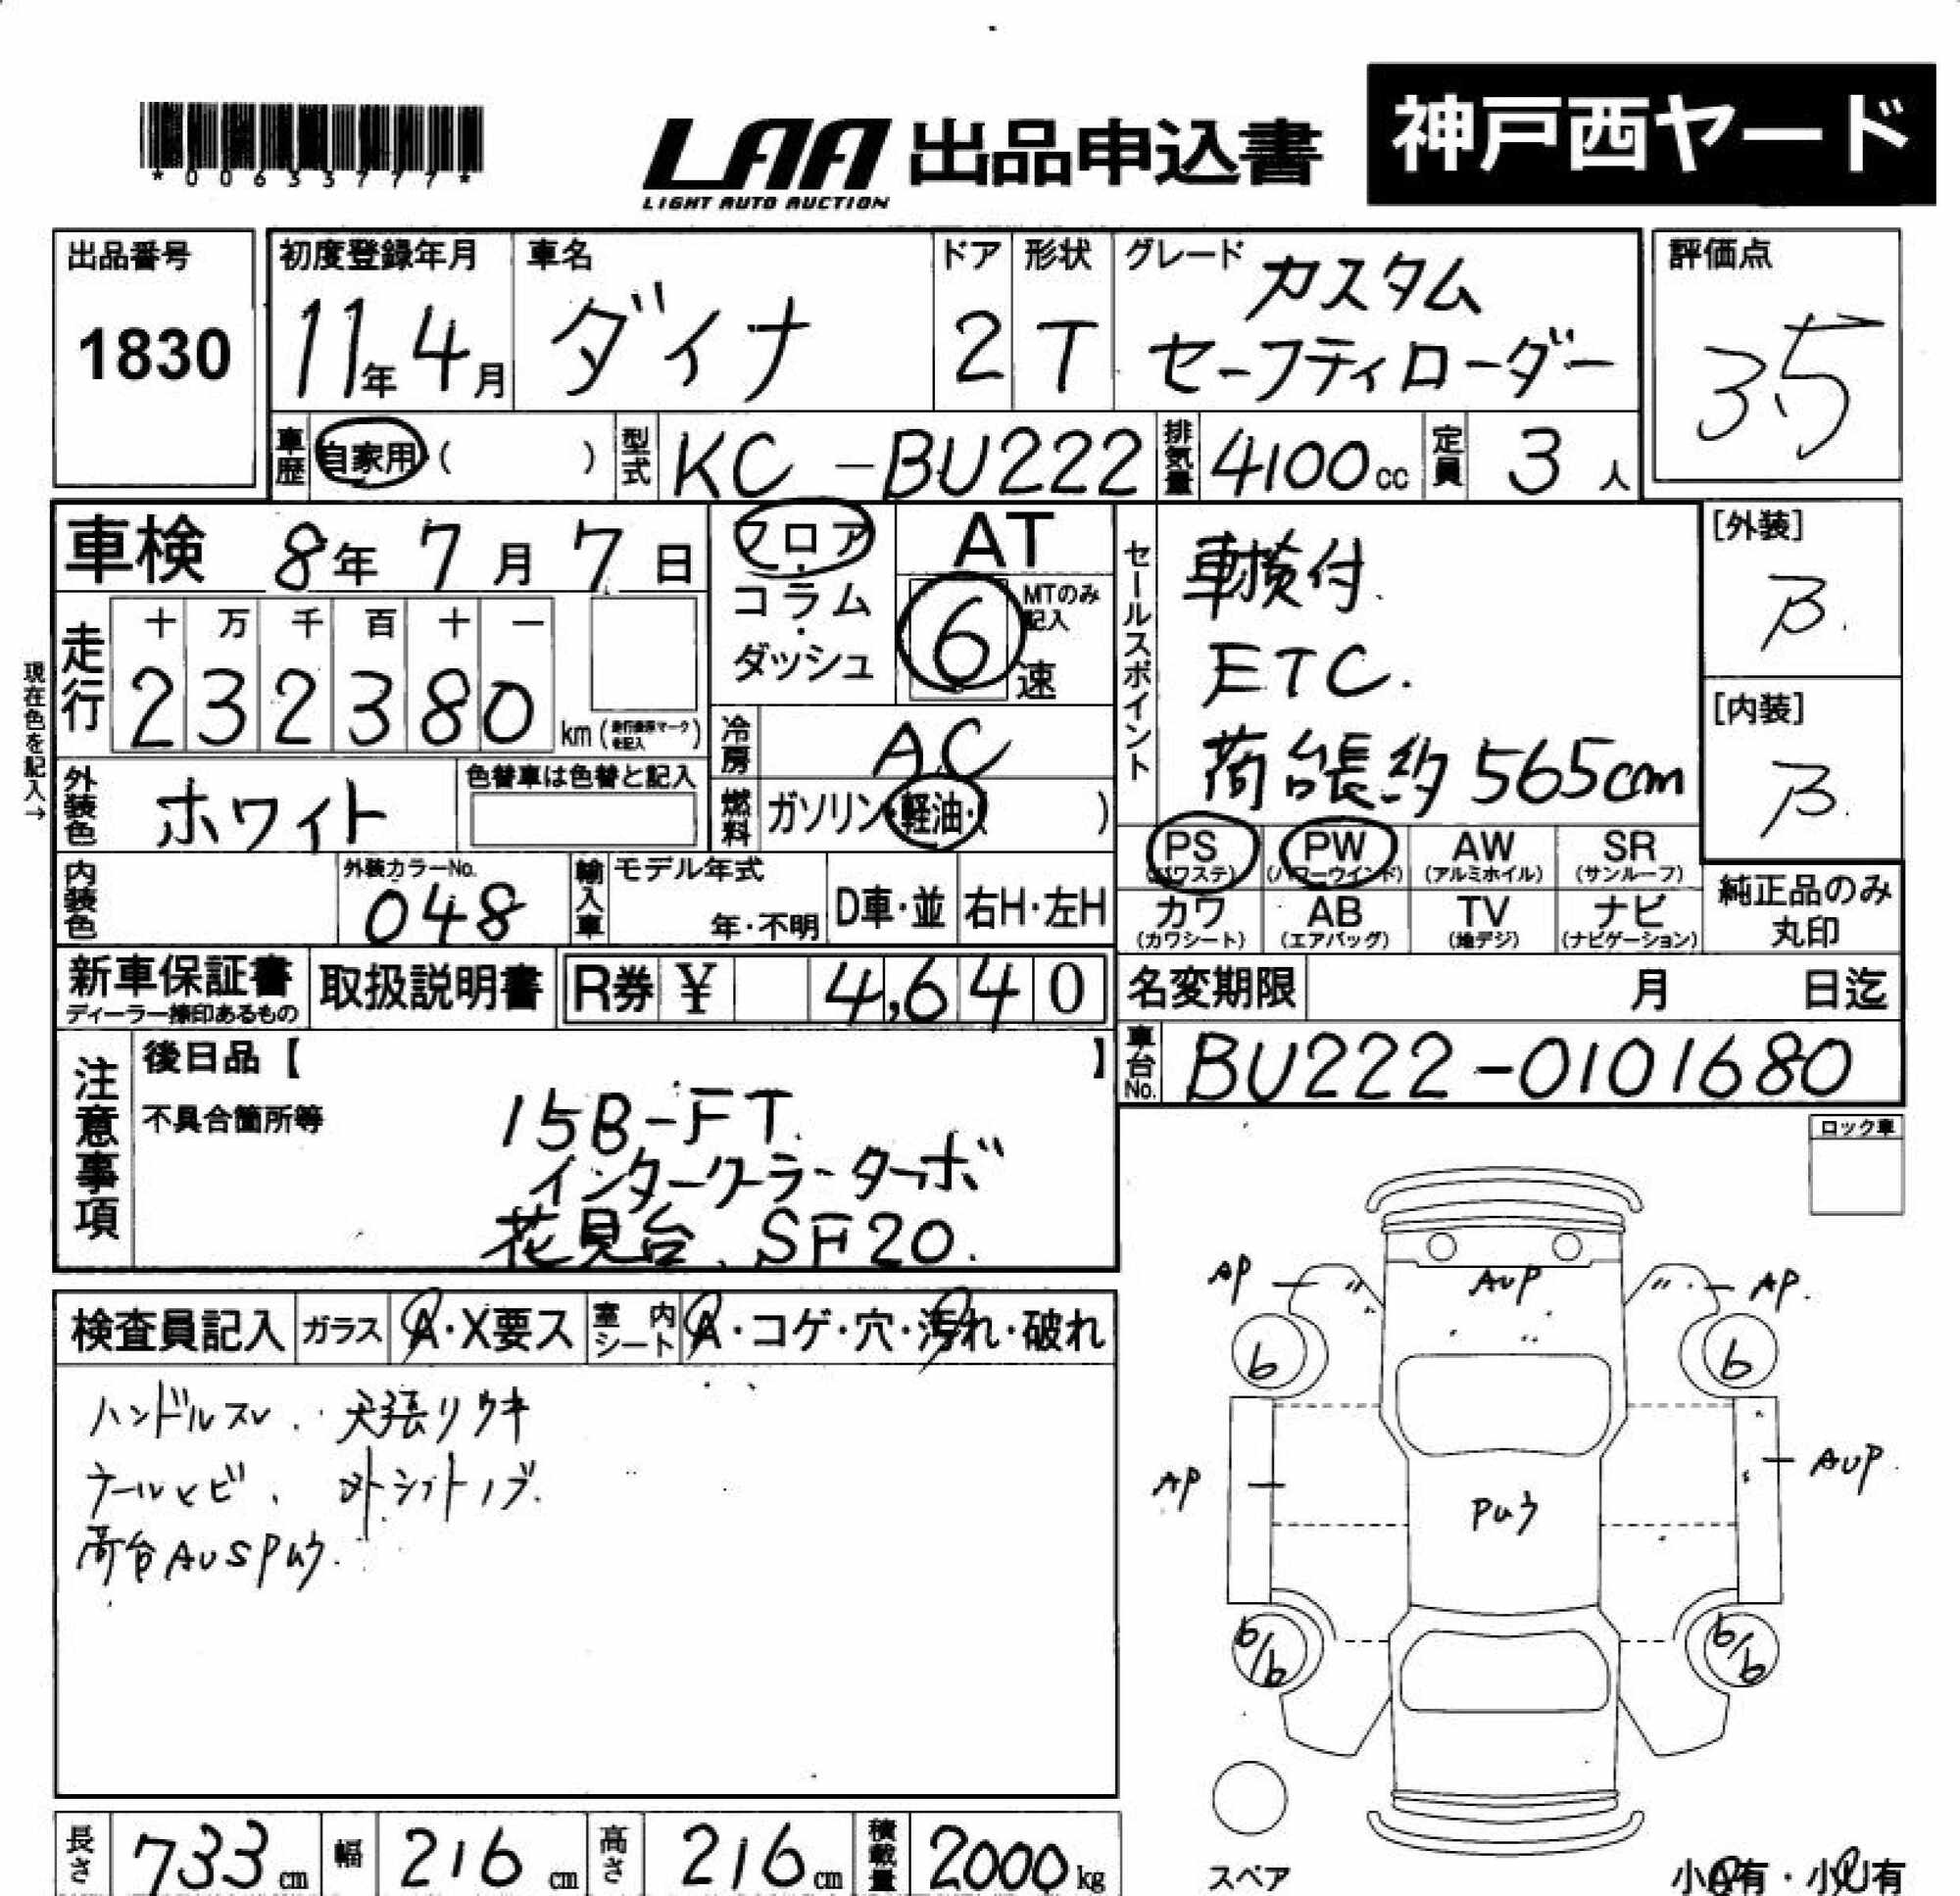 神戸西ヤード
*00633777*
LAA 出品申込書
LIGHT AUTO AUCTION
出品番号
1830
初度登録年月
11年4月
車名
ダイナ
ドア
2
形状
T
グレード
カスタム
セーフティローダー
評価点
35
車歴 自家用 ( )
型式 KC-BU222
排気量 4100cc
定員 3人
車検 8年7月7日
フロア・コラム・ダッシュ
AT
6速
MTのみ記入
セールスポイント
車検付.
ETC.
荷台長約565cm
[外装]
B.
[内装]
B.
現在色を記入→
走行
十 万 千 百 十 一
2 3 2 3 8 0 km
冷房 AC
燃料 ガソリン・軽油・( )
外装色 ホワイト
色替車は色替と記入
PS (パワステ)
PW (パワーウインド)
AW (アルミホイル)
SR (サンルーフ)
カワ (カワシート)
AB (エアバッグ)
TV (地デジ)
ナビ (ナビゲーション)
純正品のみ
丸印
内装色
外装カラーNo.
048
輸入車
モデル年式
年・不明
D車・並
右H・左H
新車保証書
ディーラー捺印あるもの
取扱説明書
R券 ¥ 4,640
名変期限 月 日迄
車台No. BU222-0101680
注意事項
後日品【 】
不具合箇所等
15B-FT.
インタークーラーターボ
花見台、SF20.
ロック車
検査員記入
ガラス A・X要ス
室内シート A・コゲ・穴・汚れ・破れ
ハンドルスレ. 天張リウキ
荷台AUSPムウ.
AP
AUP
AP.
6
6
AP
Pムウ
AUP.
6/6
6/6
スペア
長さ 733cm
幅 216cm
高さ 216cm
積載量 2000kg
小A有・小U有